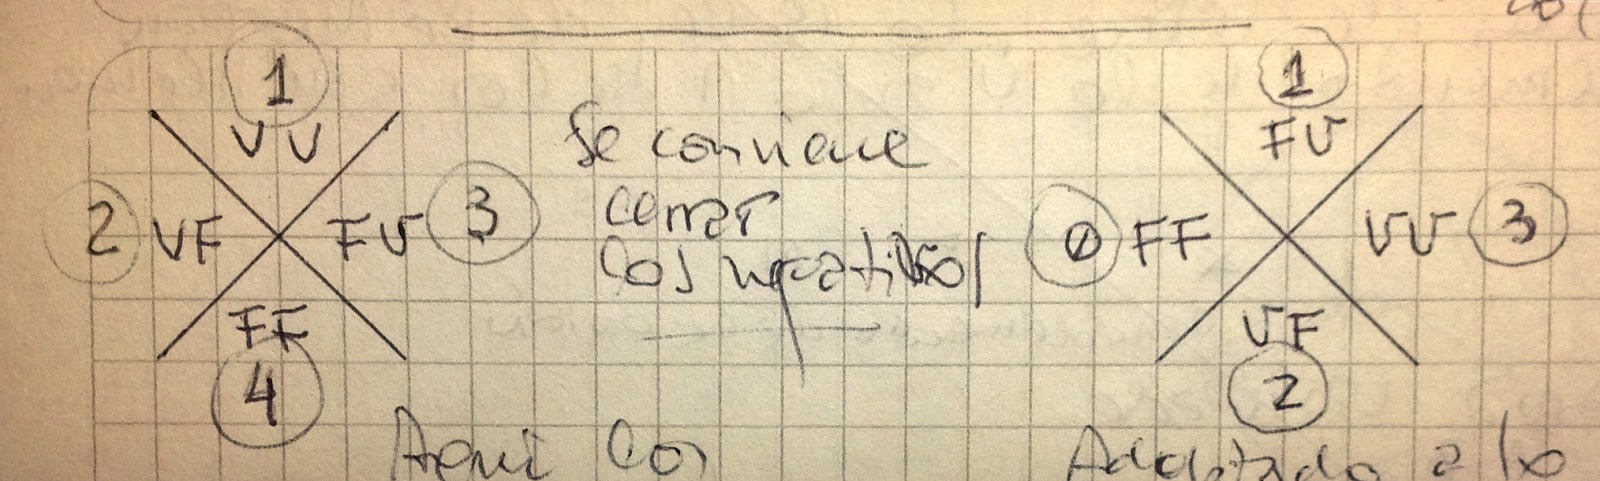 1
V V
2 VF FV 3
FF
4
Se conviene
cerrar
los negativos
1
FV
0 FF VV 3
VF
2
Aquí los
Adaptado a lo